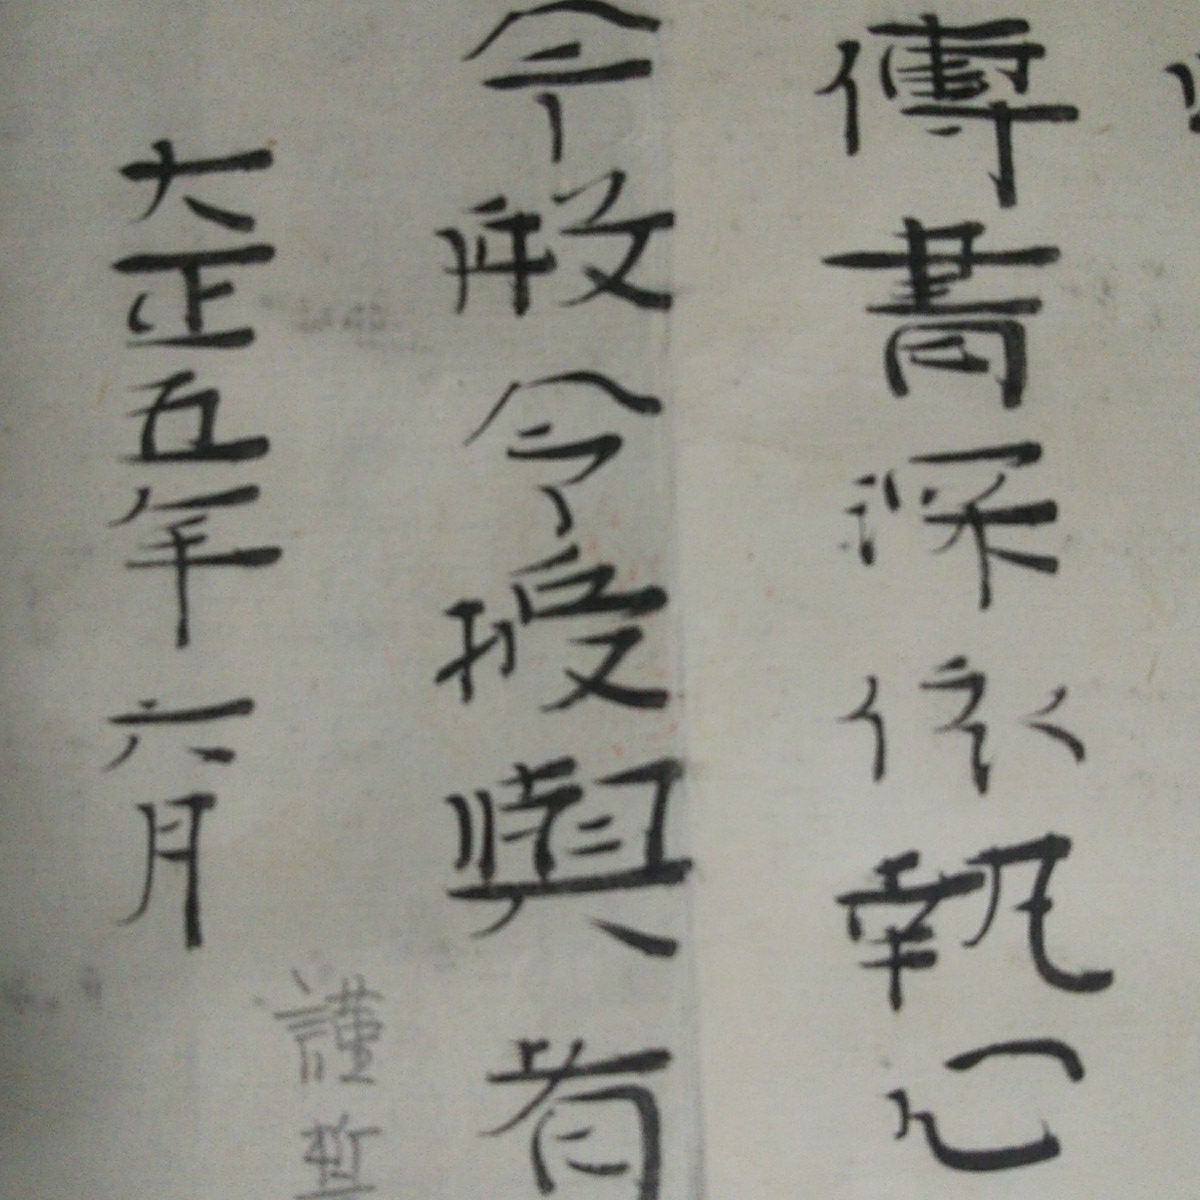 傳書深依執心
今般令授與者
謹誓
大正五年六月